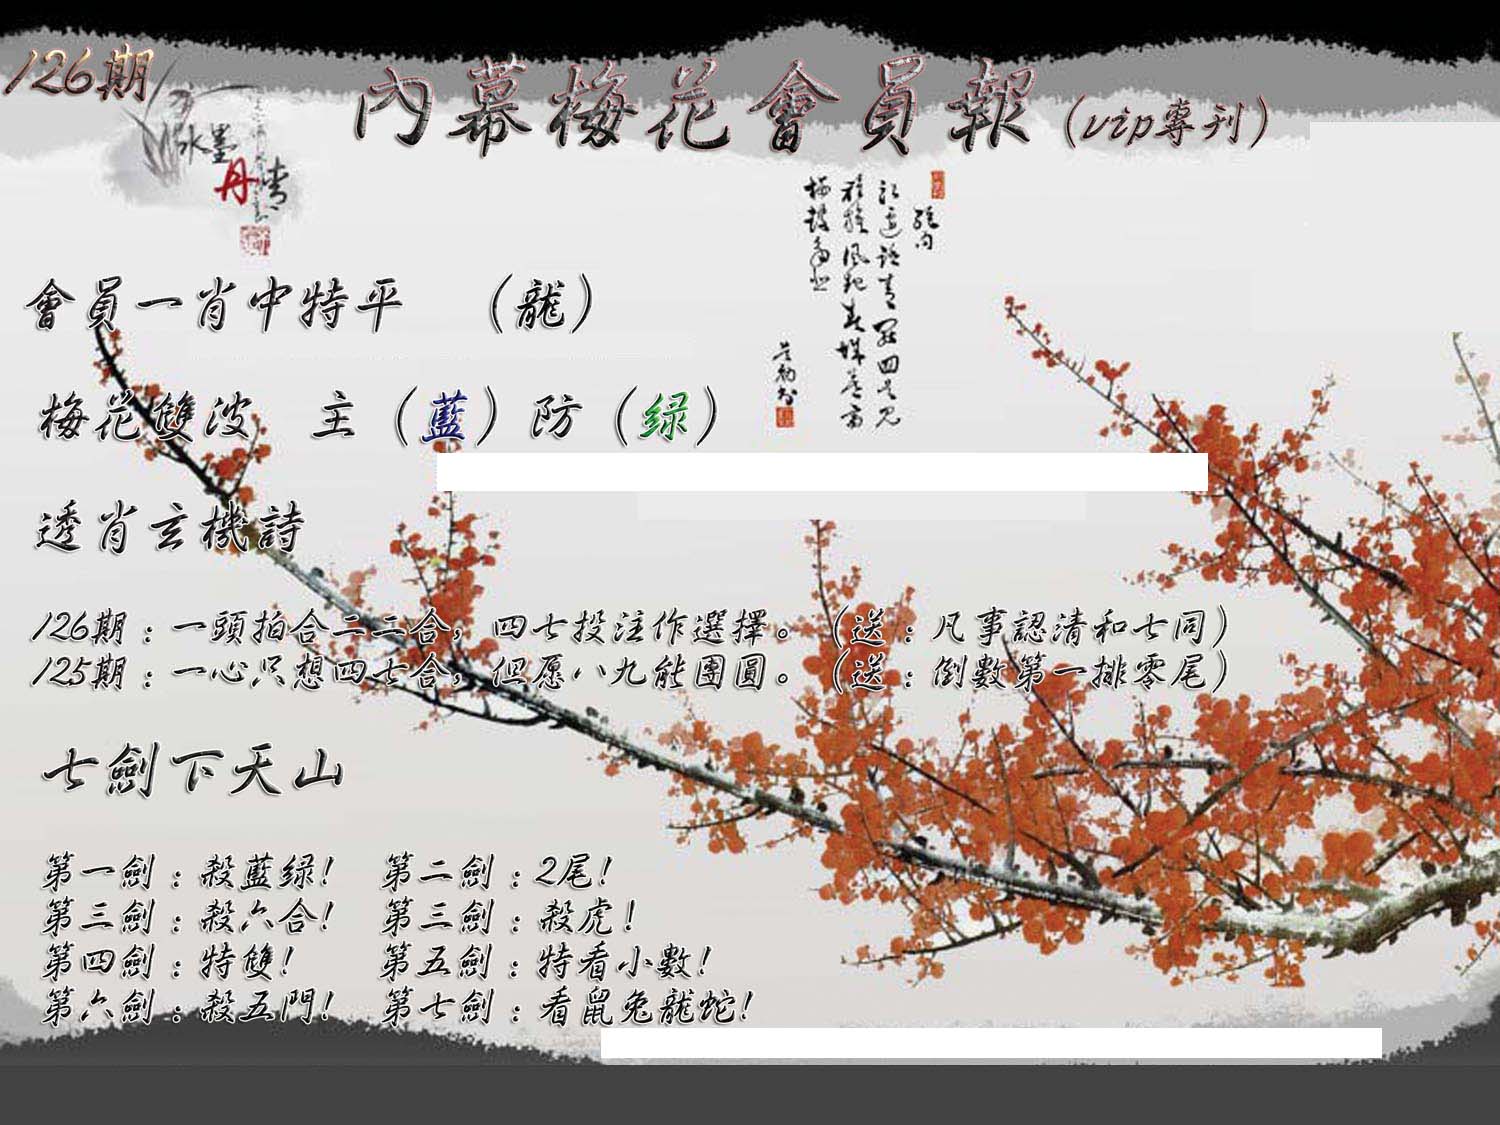 126期
內幕梅花會員報（vip專刊）
水墨
丹青
會員一肖中特平　（龍）
梅花雙波　主（藍）防（绿）
透肖玄機詩
126期：一頭拍合二二合，四七投注作選擇。（送：凡事認清和七同）
125期：一心只想四七合，但愿八九能團圓。（送：倒數第一排零尾）
七劍下天山
第一劍：殺藍绿！　第二劍：2尾！
第三劍：殺六合！　第三劍：殺虎！
第四劍：特雙！　第五劍：特看小數！
第六劍：殺五門！　第七劍：看鼠兔龍蛇！